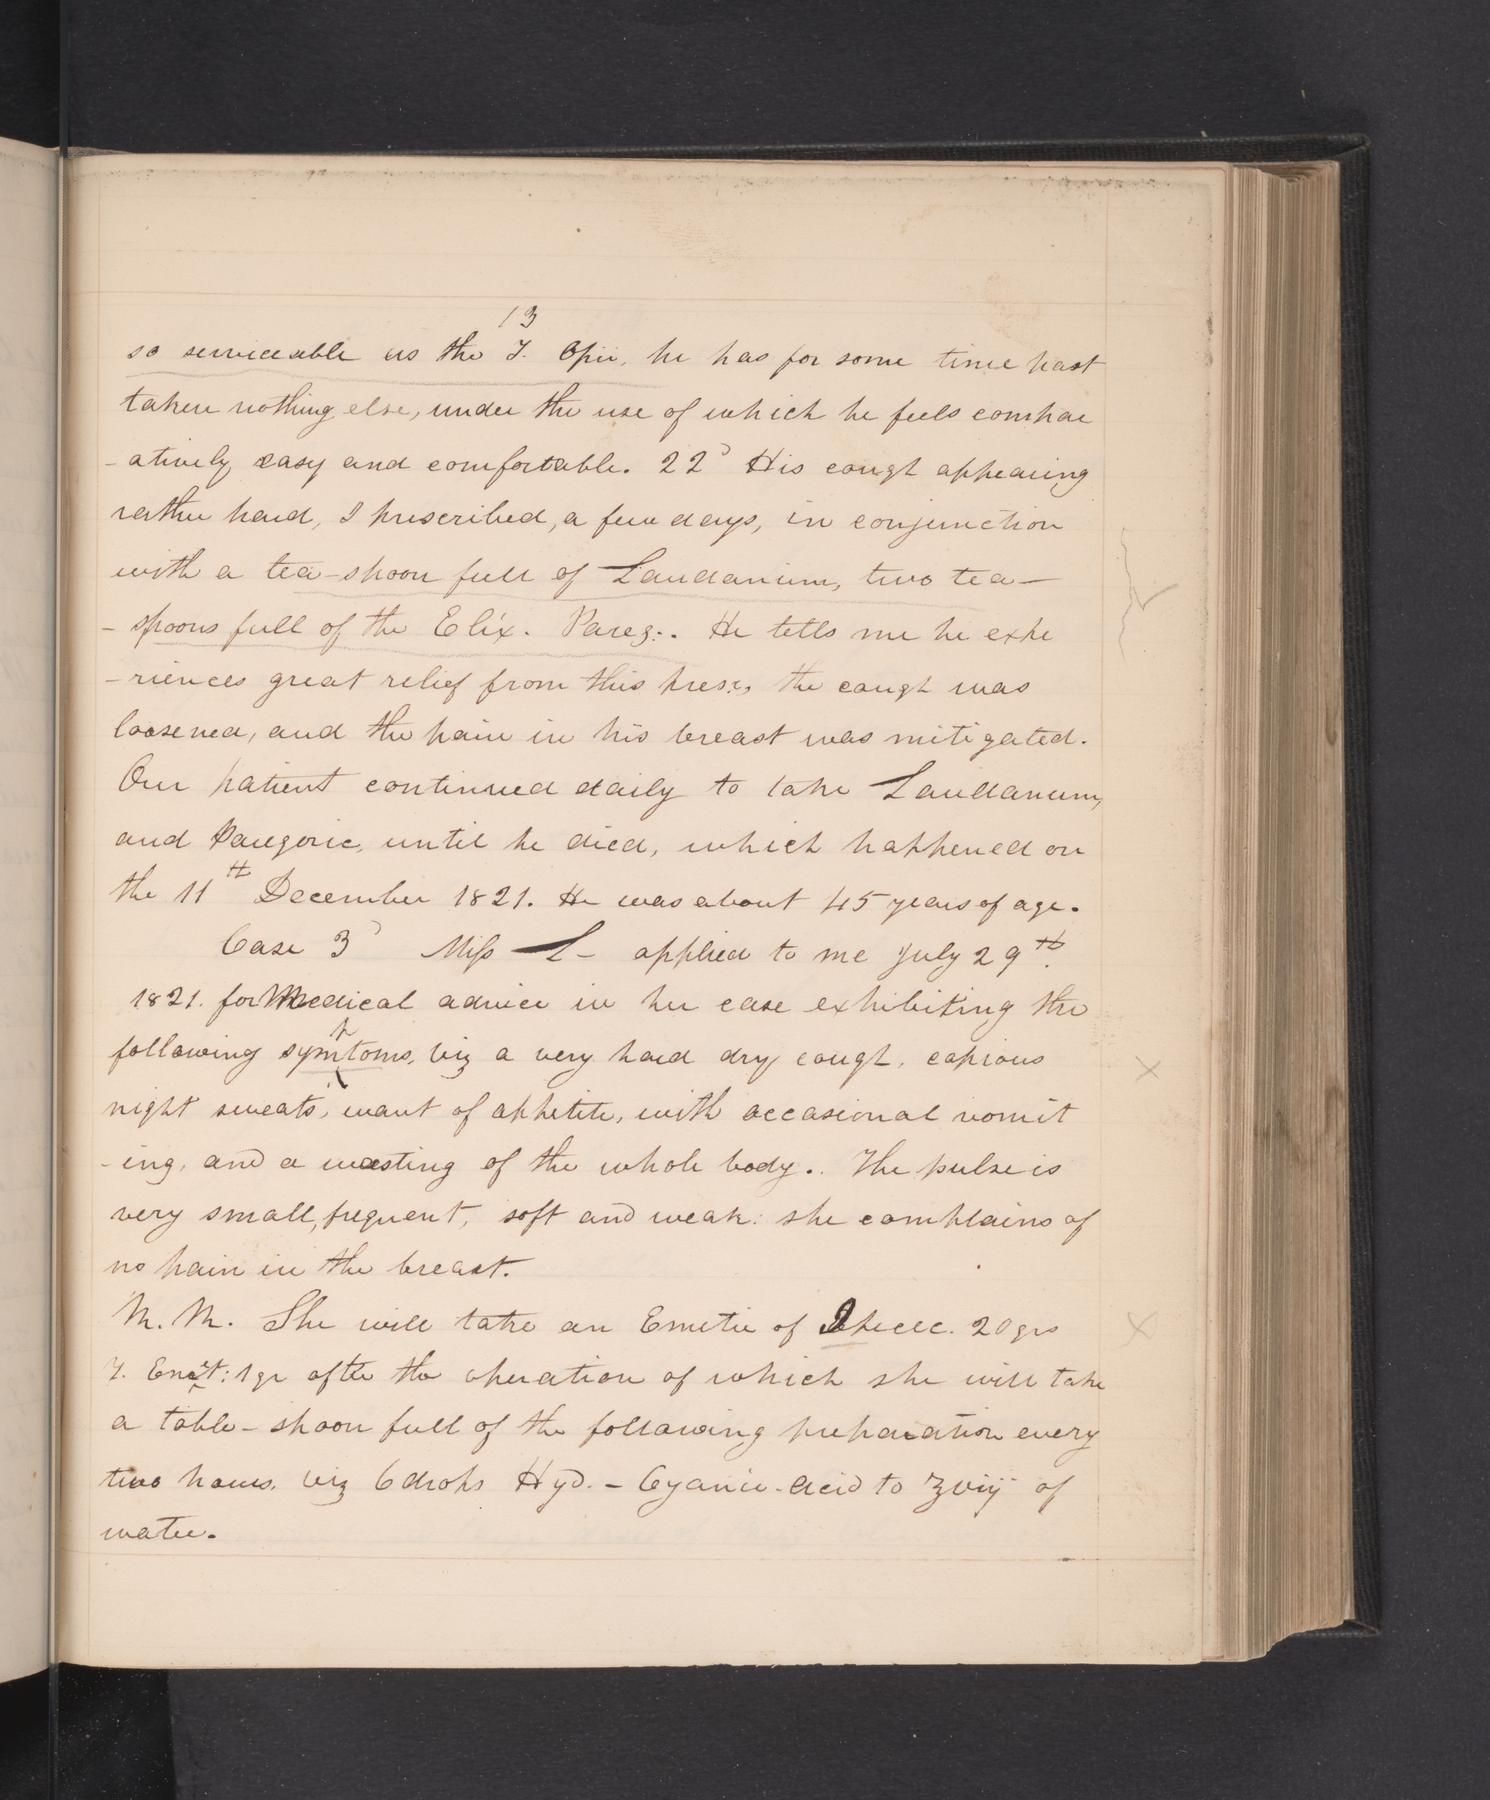 13
so serviceable as the T. Opii, he has for some time past
taken nothing else, under the use of which he feels compar
-atively easy and comfortable. 22d His cough appearing
rather hard, I prescribed, a few days, in conjunction
with a tea-spoon full of Laudanum, two tea-
-spoons full of the Elix. Pareg:. He tells me he expe
-riences great relief from this pres:, the cough was
loosened, and the pain in his breast was mitigated.
Our patient continued daily to take Laudanum,
and Paregoric, until he died, which happened on
the 11th December 1821. He was about 45 years of age.
Case 3d Miss L- applied to me July 29th.
1821. for Medical advice in her case exhibiting the
following symptoms, viz a very hard dry cough, copious
night sweats, want of appetite, with occasional vomit
-ing, and a wasting of the whole body.. The pulse is
very small, frequent, soft and weak: she complains of
no pain in the breast.
M. M. She will take an Emetic of Ipecac. 20 grs
T. Emet: 1 gr after the operation of which she will take
a table-spoon full of the following preparation every
two hours. viz 6 drops Hyd.-Cyanic-Acid to ℥viij of
water.